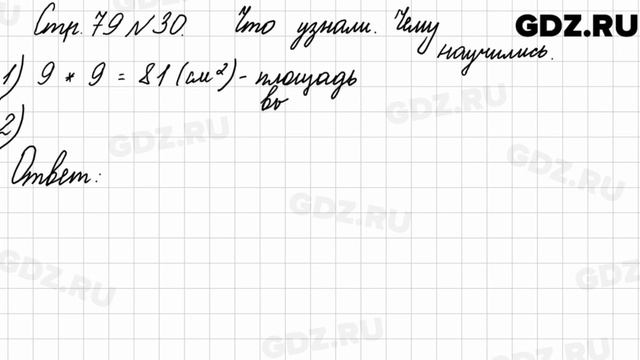 Стр. 79 № 30. Что узнали. Чему научились.
GDZ.RU
1) 9 * 9 = 81 (см²) - площадь
вы
2)
Ответ:
GDZ.RU
GDZ.RU
GDZ.RU
GDZ.RU
GDZ.RU
GDZ.RU
GDZ.RU
GDZ.RU